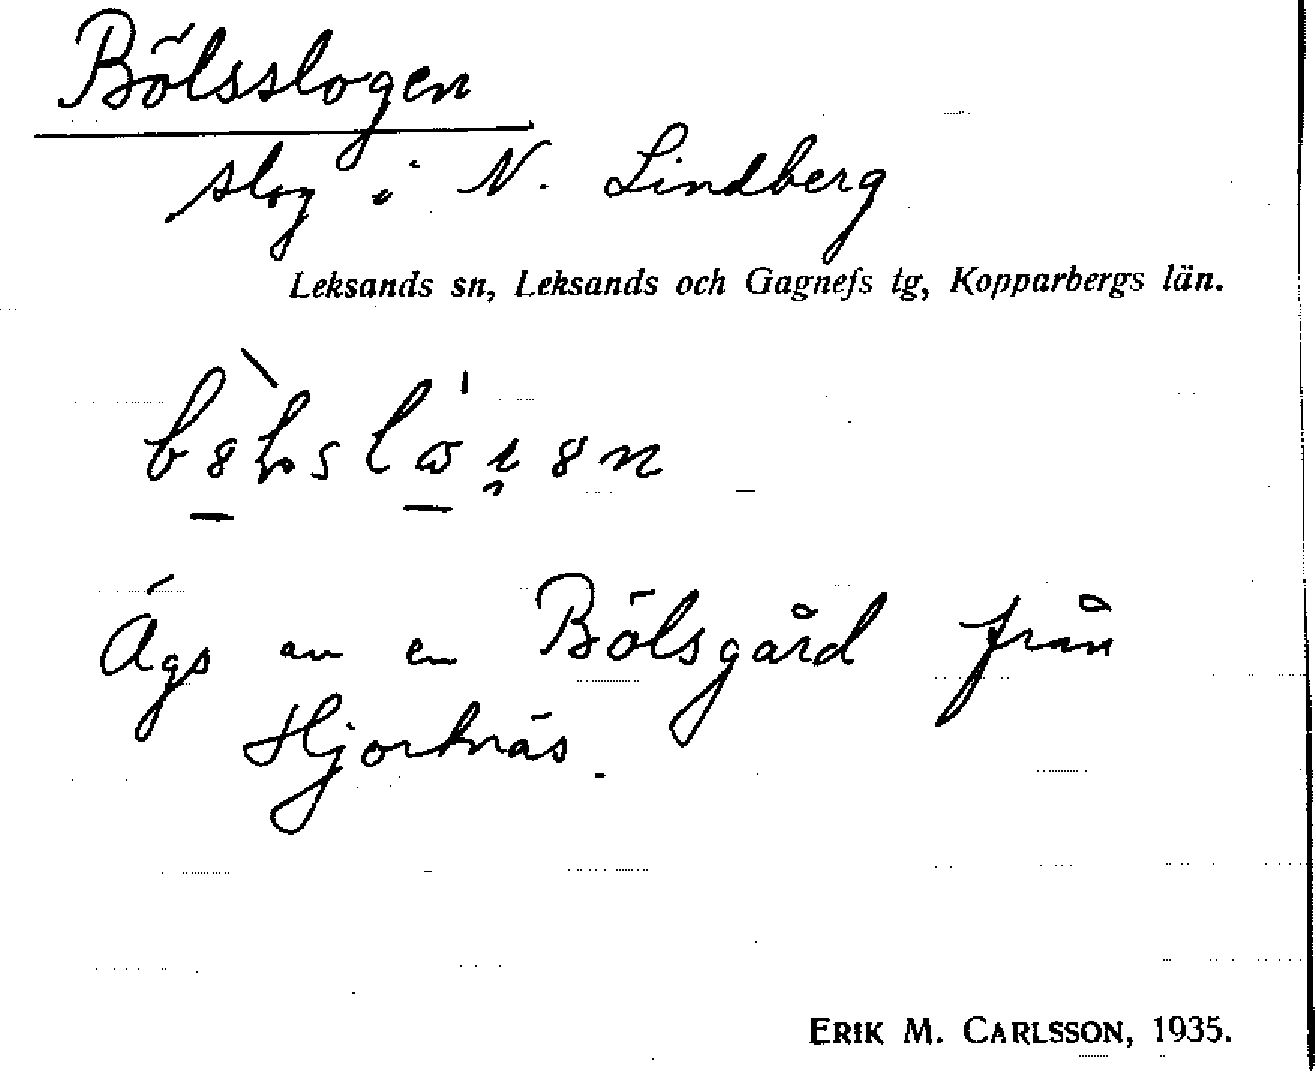 Bölsslogen
slog i N. Lindberg
Leksands sn, Leksands och Gagnefs tg, Kopparbergs län.
Ägs av en Bölsgård från
Hjortnäs.
ERIK M. CARLSSON, 1935.